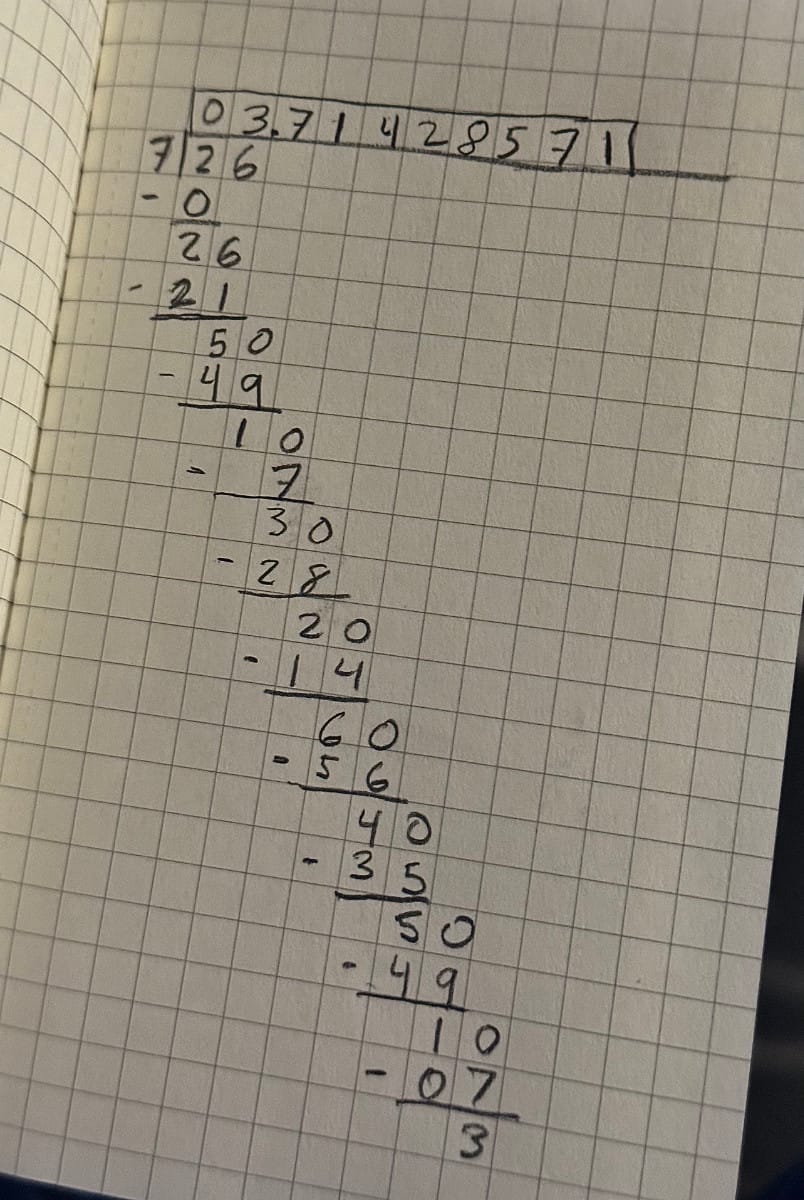 03.71428571
7|26
- 0
26
- 21
50
- 49
10
- 7
30
- 28
20
- 14
60
- 56
40
- 35
50
- 49
10
- 07
3